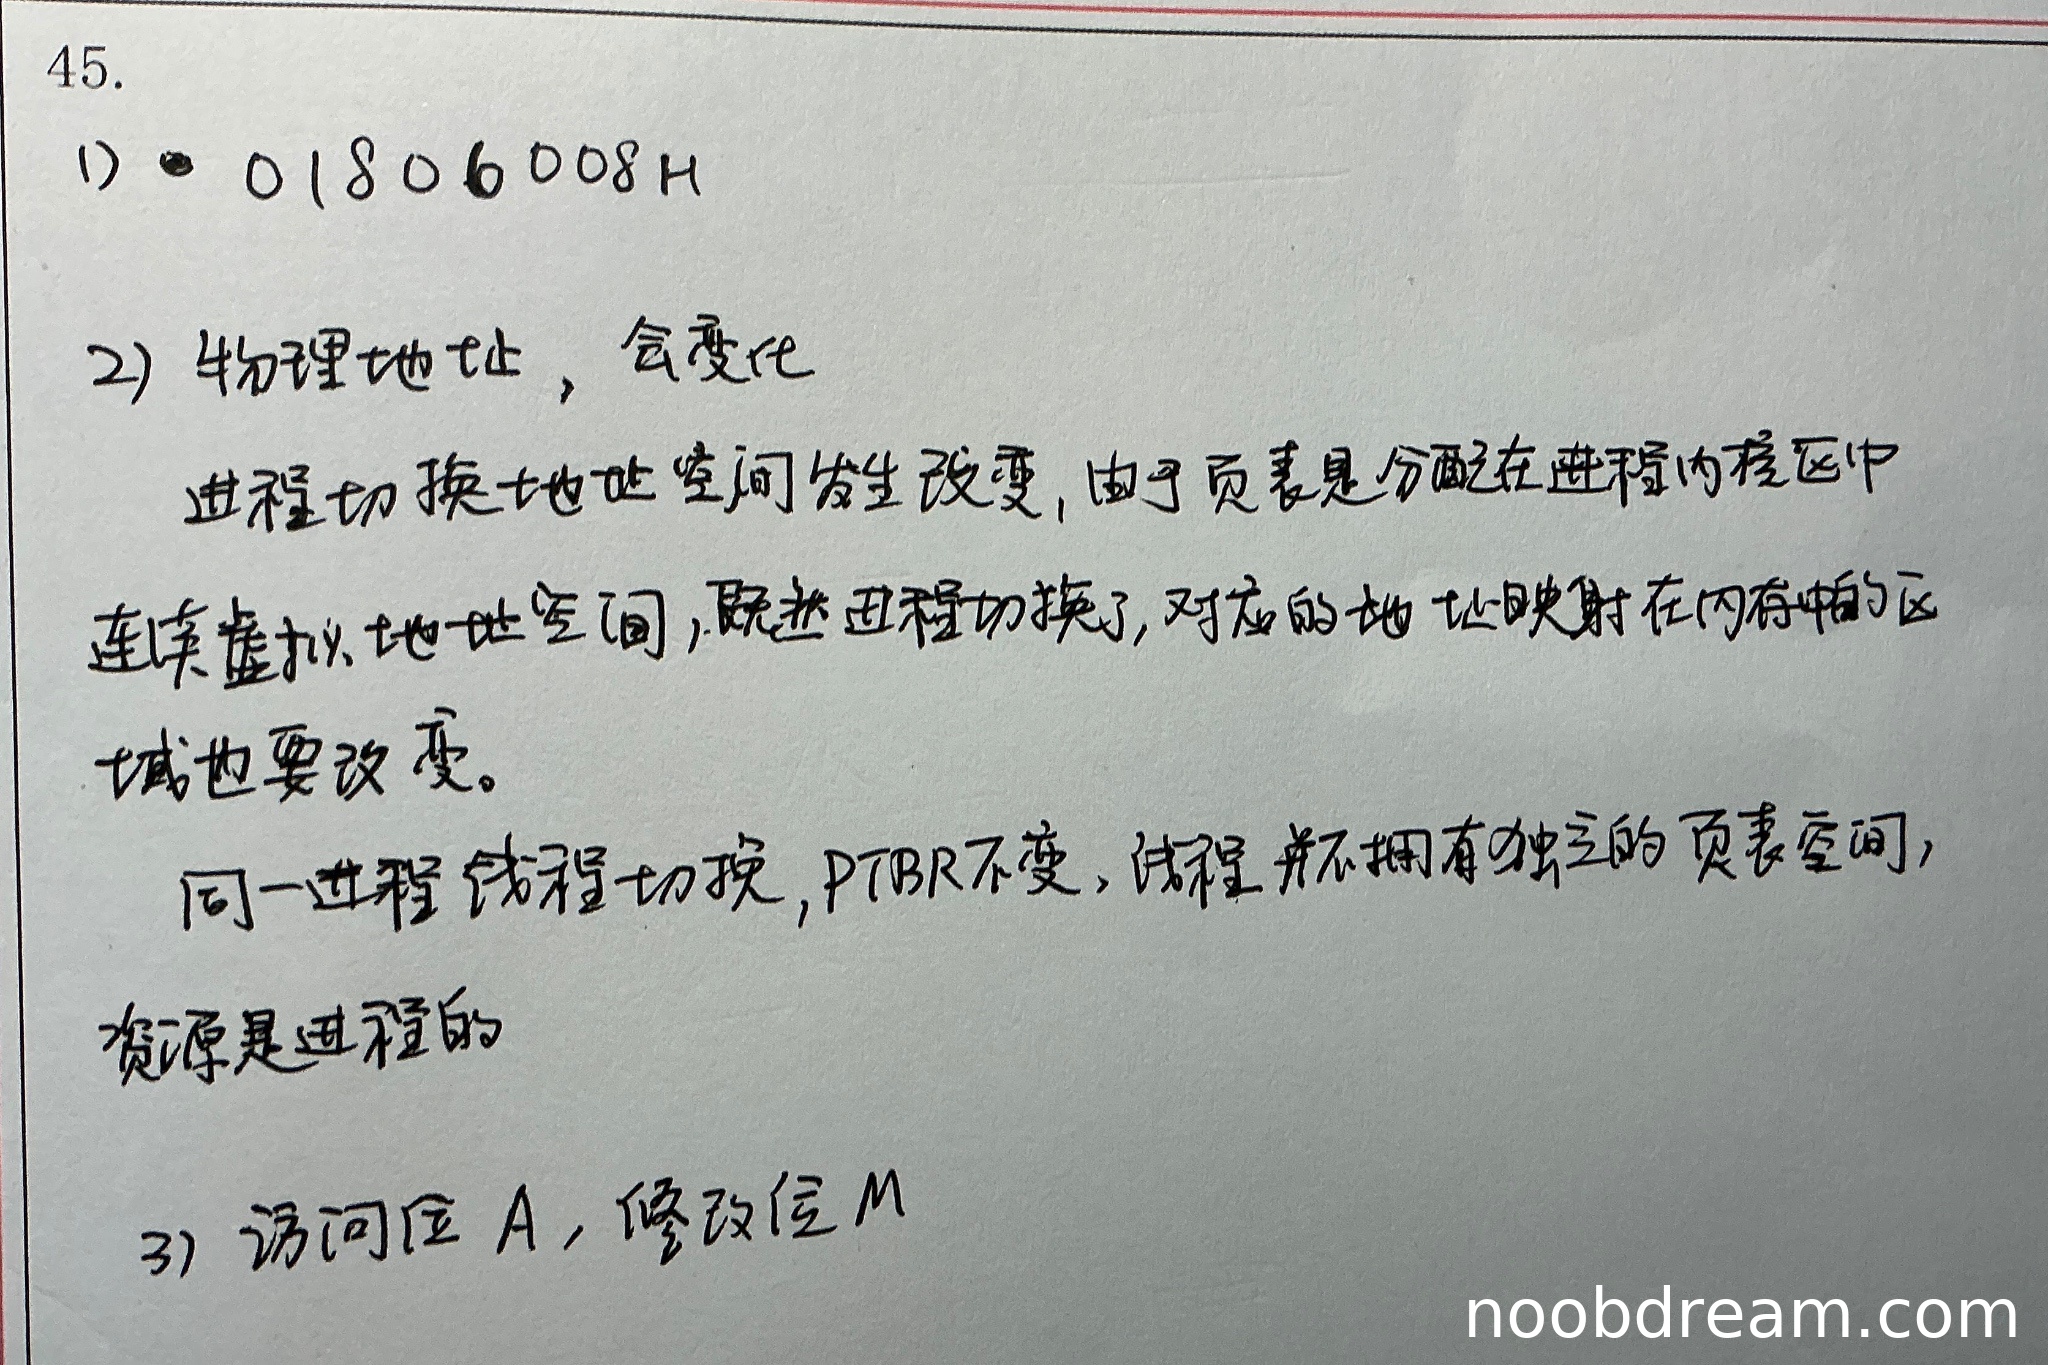 45.
1) 01806008H
2) 物理地址，会变化
进程切换地址空间发生改变，由于页表是分配在进程内核区中
连续虚拟地址空间，既然进程切换了，对应的地址映射在内存中的区
域也要改变。
同一进程线程切换，PTBR不变，线程并不拥有独立的页表空间，
资源是进程的
3) 访问位 A，修改位 M
noobdream.com